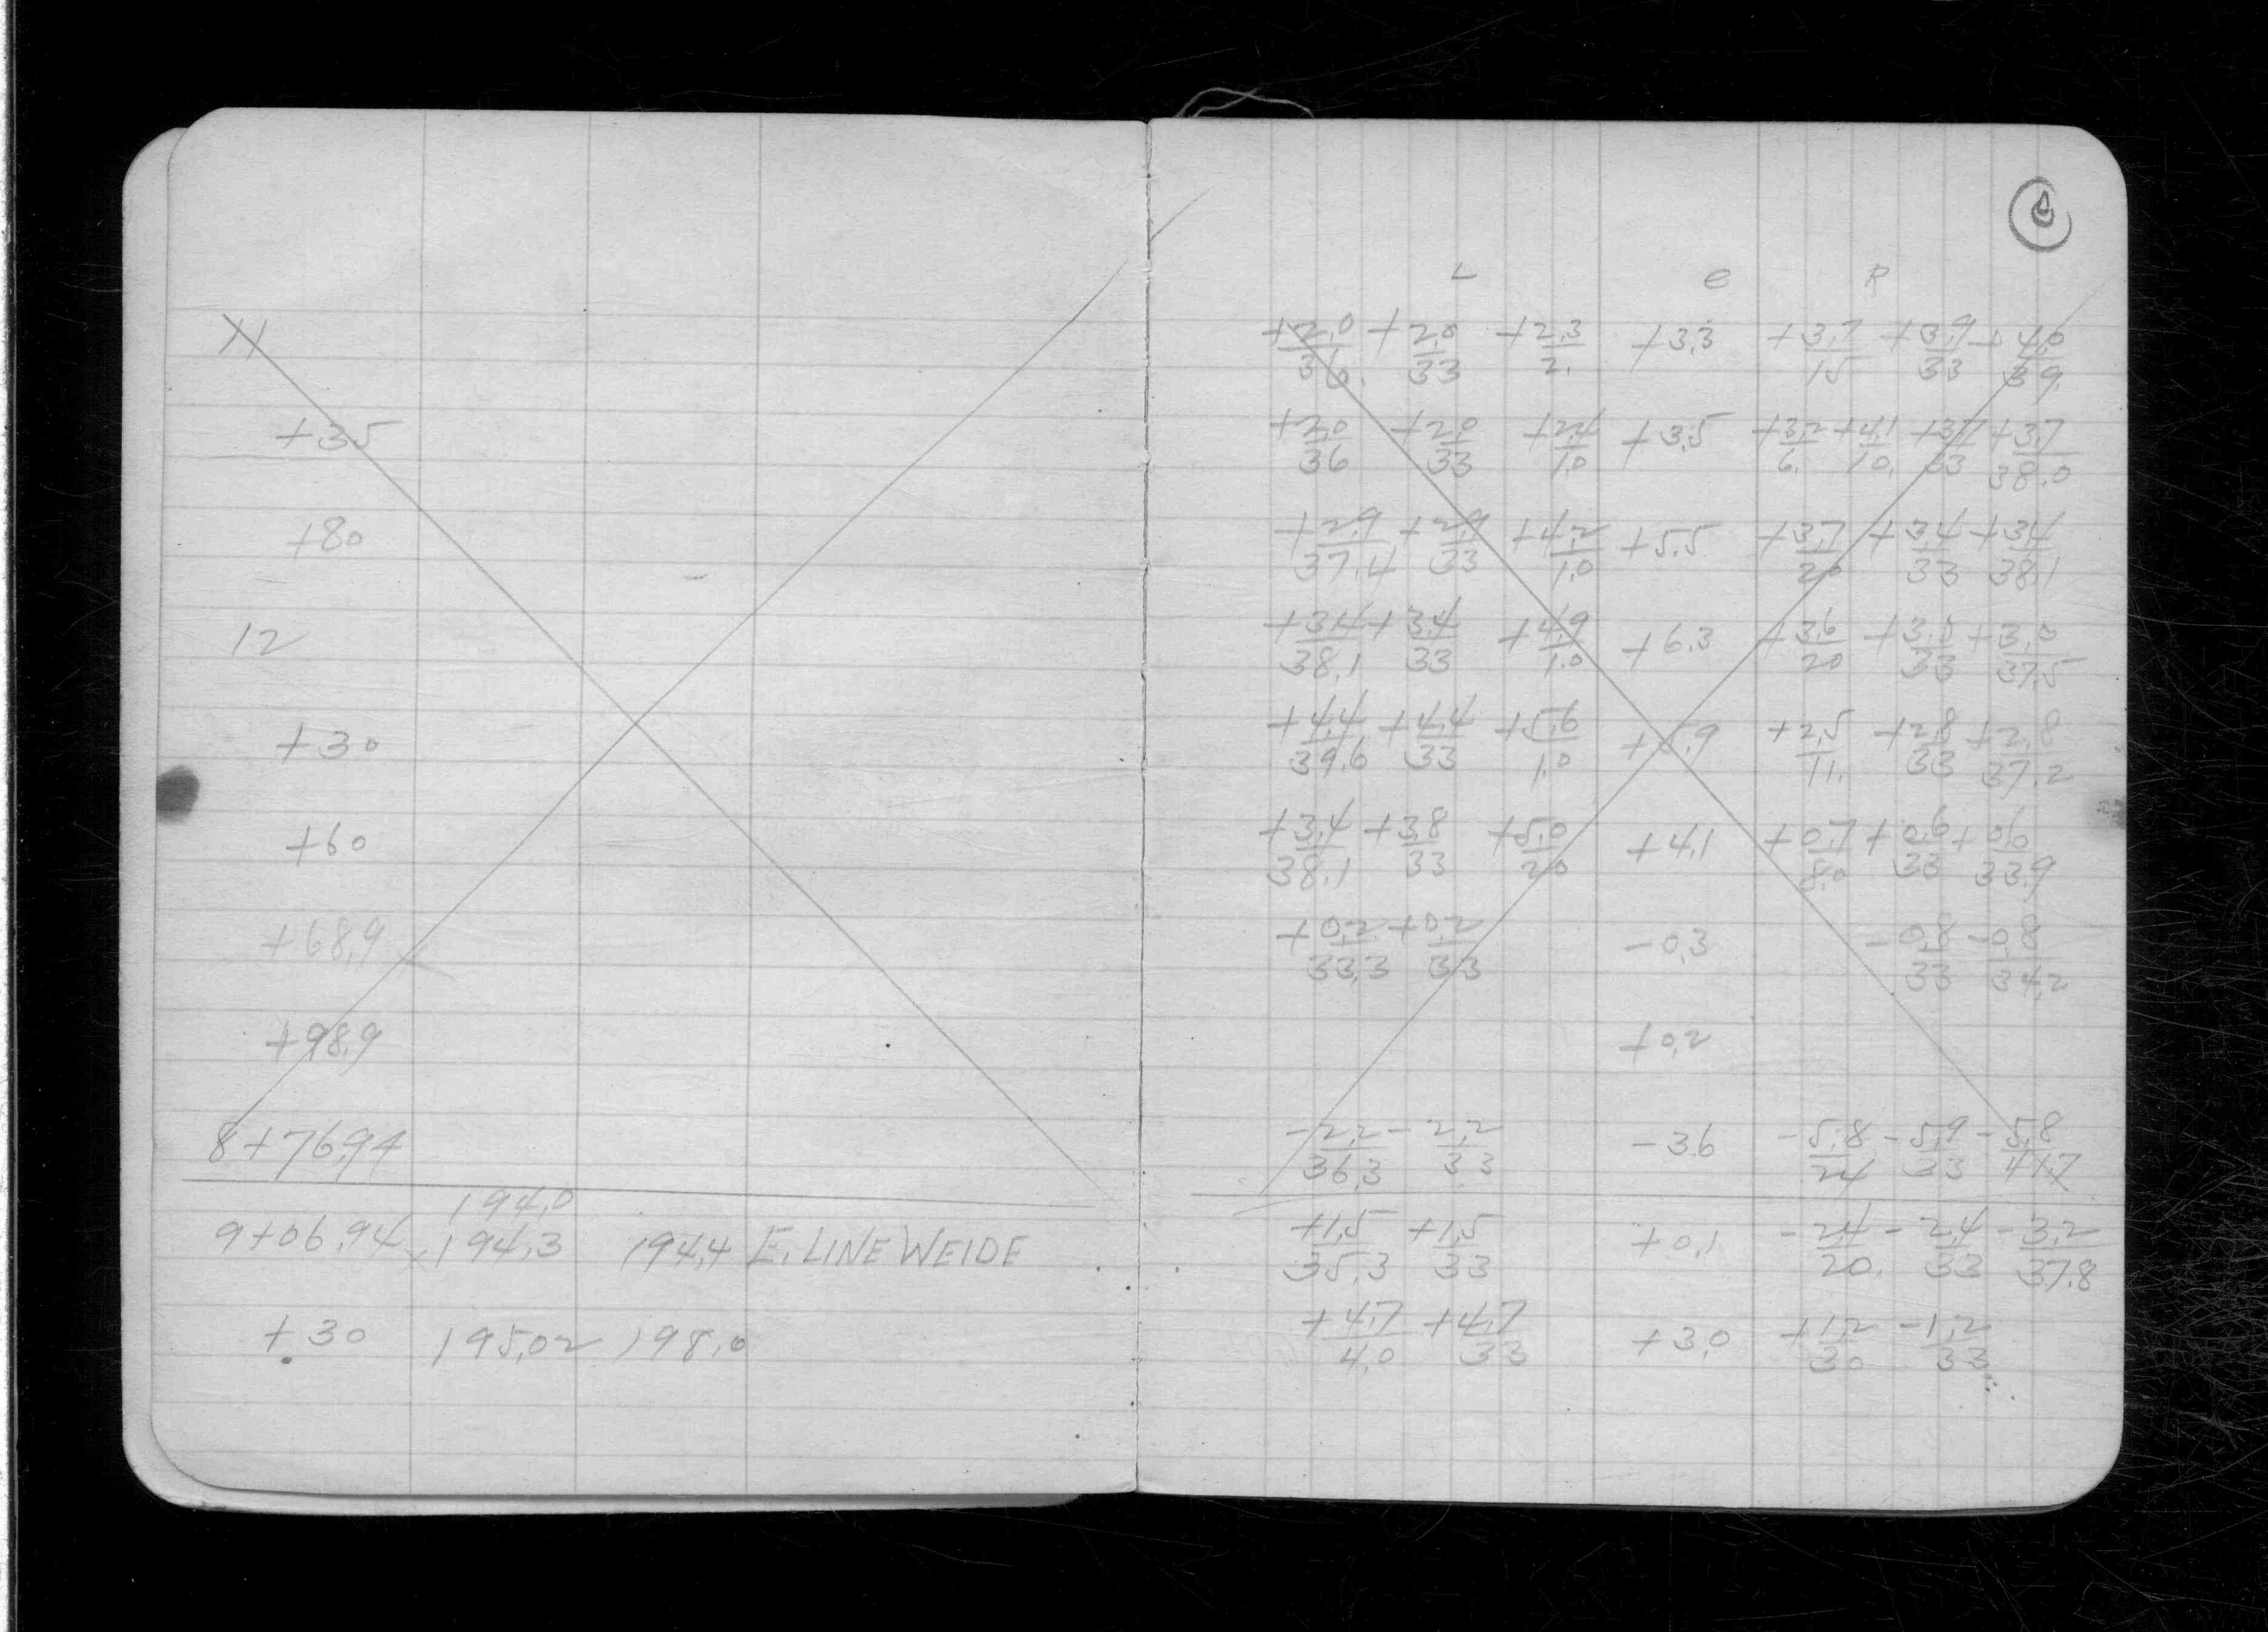 11
+35
+80
12
+30
+60
+68.9
+98.9
8+76.94
194.0
9+06.94 194.3 194.4 E. LINE WEIDE
+30 195.02 198.0
L C R
+2.0/36. +2.0/33 +2.3/2. +3.3 +3.7/15 +3.9/33 +4.0/39.
+2.0/36 +2.0/33 +2.4/1.0 +3.5 +3.2/6. +4.1/10. +3.7/33 +3.7/38.0
+2.9/37.4 +2.9/33 +4.2/1.0 +5.5 +3.7/20 +3.4/33 +3.4/38.1
+3.4/38.1 +3.4/33 +4.9/1.0 +6.3 +3.6/20 +3.0/33 +3.0/37.5
+4.4/39.6 +4.4/33 +5.6/1.0 +5.9 +2.5/11. +2.8/33 +2.8/37.2
+3.4/38.1 +3.8/33 +5.0/20 +4.1 +0.7/8.0 +0.6/33 +0.6/33.9
+0.2/33.3 +0.2/33 -0.3 -0.8/33 -0.8/34.2
+0.2
-2.2/36.3 -2.2/33 -3.6 -5.8/24 -5.9/33 -5.8/41.7
+1.5/35.3 +1.5/33 +0.1 -2.4/20. -2.4/33 -3.2/37.8
+4.7/4.0 +4.7/33 +3.0 +1.2/30 -1.2/33